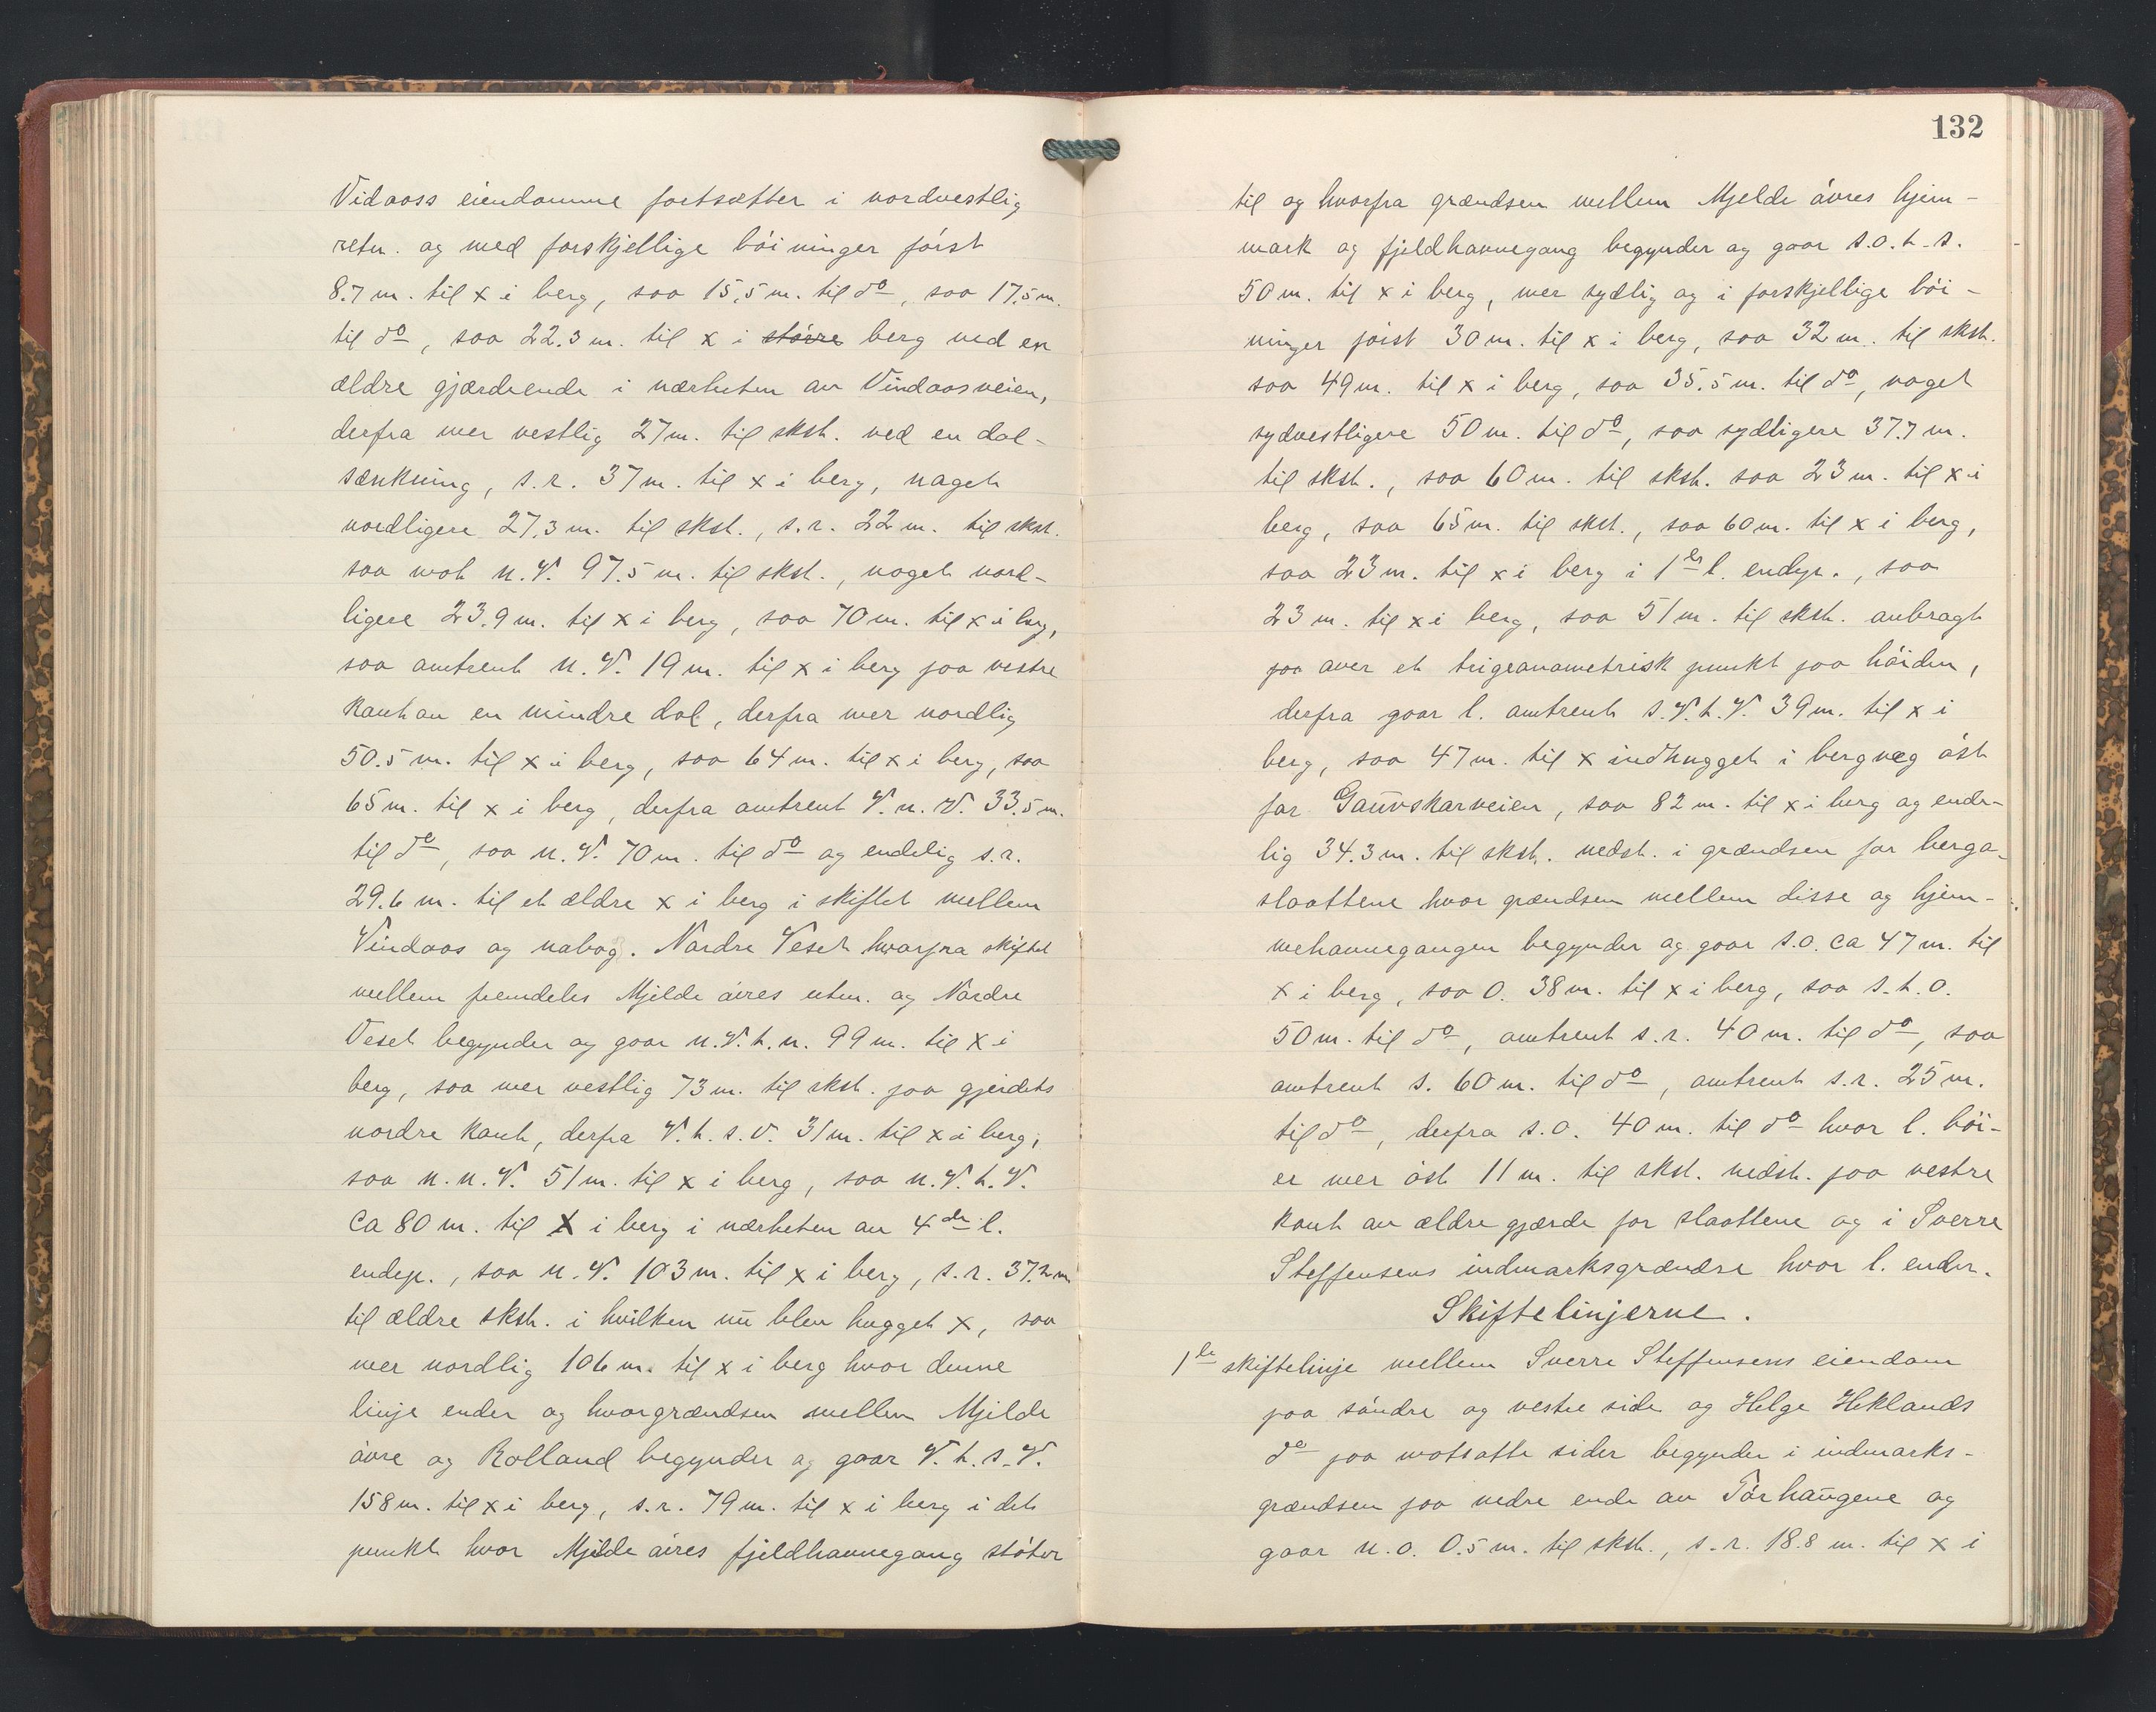 Vidaass eiendomme fortsætter i nordvestlig
retn. og med forskjellige böininger först
8.7 m. til x i berg, saa 15,5 m. til do, saa 17,5 m.
til do, saa 22.3 m. til x i större berg ved en
ældre gjærdeende i nærheten av Vindaasveien,
derfra mer vestlig 27 m. til skst. ved en dal-
sænkning, s.r. 37 m. til x i berg, noget
nordligere 27,3 m. til skst., s.r. 22 m. til skst.
saa mot n.V. 97.5 m. til skst., noget nord-
ligere 23.9 m. til x i berg, saa 70 m. til x i berg,
saa omtrent n.V. 19 m. til x i berg paa vestre
kant av en mindre dal, derfra mer nordlig
50.5 m. til x i berg, saa 64 m. til x i berg, saa
65 m. til x i berg, derfra omtrent V.n.V. 33.5 m.
til do, saa n.V. 70 m. til do og endelig s.r.
29.6 m. til et ældre x i berg i skiftet mellem
Vindaas og nabog. Nordre Veset hvorfra skiftet
mellem fremdeles Mjelde övres utm. og Nordre
Veset begynder og gaar n.V.t.n. 99 m. til x i
berg, saa mer vestlig 73 m. til skst. paa gjerdets
nordre kant, derfra V.t.s.V. 31 m. til x i berg,
saa n.n.V. 51 m. til x i berg, saa n.V.t.V.
ca 80 m. til x i berg i nærheten av 4de l.
endep., saa n.V. 103 m. til x i berg, s.r. 37.2 m
til ældre skst. i hvilken nu blev hugget x, saa
mer nordlig 106 m. til x i berg hvor denne
linje ender og hvor grændsen mellem Mjelde
övre og Rolland begynder og gaar V.t.s.V.
158 m. til x i berg, s.r. 79 m. til x i berg i det
punkt hvor Mjelde övres fjeldhavnegang stöter
132
til og hvorfra grændsen mellem Mjelde övres hjem-
mark og fjeldhavnegang begynder og gaar s.o.t.s.
50 m. til x i berg, mer sydlig og i forskjellige böi-
ninger först 30 m. til x i berg, saa 32 m. til skst.
saa 49 m. til x i berg, saa 35.5 m. til do, noget
sydvestligere 50 m. til do, saa sydligere 37.7 m.
til skst., saa 60 m. til skst. saa 23 m. til x i
berg, saa 65 m. til skst., saa 60 m. til x i berg,
saa 23 m. til x i berg i 1ste l. endep., saa
23 m. til x i berg, saa 51 m. til skst. anbragt
paa over et trigeanometrisk punkt paa höiden,
derfra gaar l. omtrent s.V.t.V. 39 m. til x i
berg, saa 47 m. til x indhugget i bergveg öst
for Gauvskarveien, saa 82 m. til x i berg og ende-
lig 34.3 m. til skst. nedst. i grændsen for berga-
slaattene hvor grændsen mellem disse og hjem-
mehavnegangen begynder og gaar s.o. ca 47 m. til
x i berg, saa o. 38 m. til x i berg, saa s.t.o.
50 m. til do, omtrent s.r. 40 m. til do, saa
omtrent s. 60 m. til do, omtrent s.r. 25 m.
til do, derfra s.o. 40 m. til do hvor l. böi-
er mer öst 11 m. til skst. nedst. paa vestre
kant av ældre gjærde for slaattene og i Sverre
Steffensens indmarksgrændse hvor l. ender.
Skiftelinjerne.
1ste skiftelinje mellem Sverre Steffensens eiendom
paa söndre og vestre side og Helge Heklands
do paa motsatte sider begynder i indmarks-
grændsen paa nedre ende av Törhaugene og
gaar n.o. 0.5 m. til skst., s.r. 18.8 m. til x i